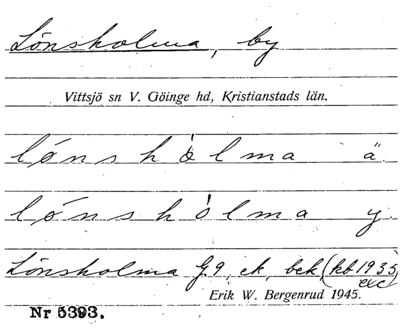 Lönsholma, by
Vittsjö sn V. Göinge hd, Kristianstads län.
lónshòlma ä
lónshòlma y
Lönsholma G.9, ek, bek, (kb 1935 etc)
Erik W. Bergenrud 1945.
Nr 5393.